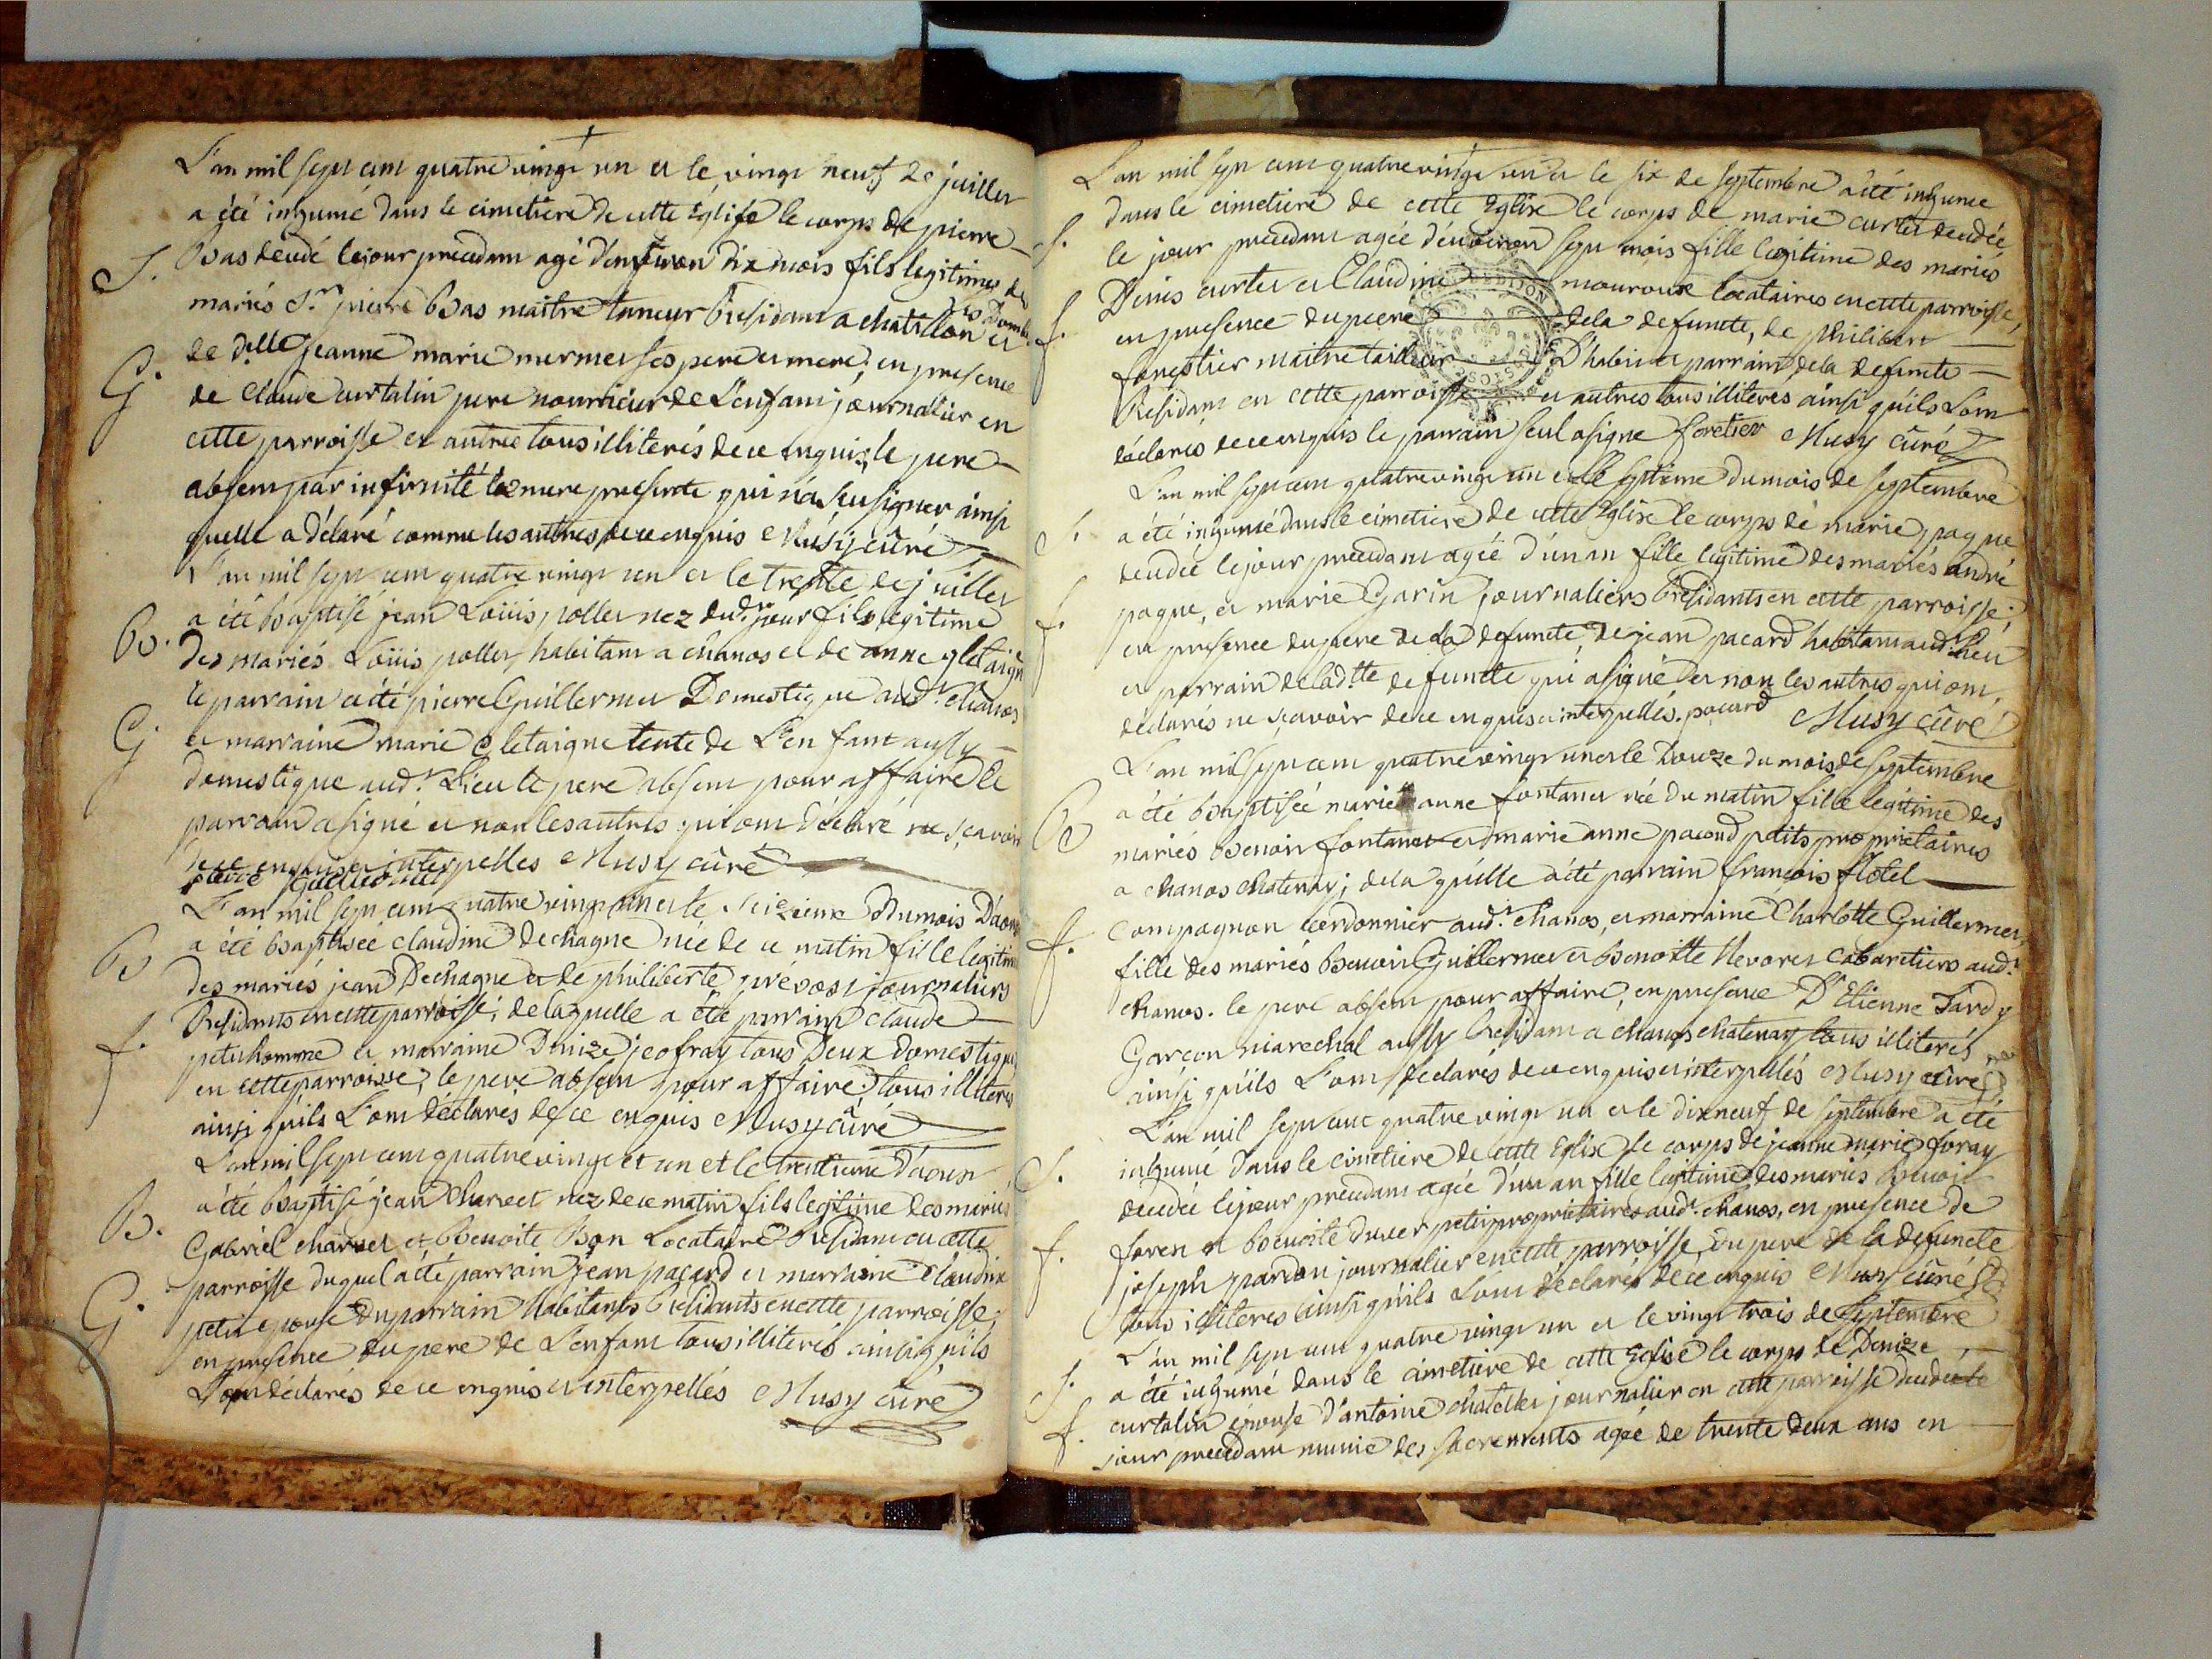 L'an mil sept cent quatre vingt un et le vingt neuf de juillet
a été inhumé dans le cimetiere de cette Eglise le corps de pierre
S. Bas decedé le jour precedant agé d'environ dix mois fils legitime des
mariés Sr. pierre Bas maitre tanneur Residant a chatillon et
de dlle jeanne marie mermet ses pere et mere; en presence
G. de Claude curtalin pere nourricier de L'enfant journalier en
cette parroisse et autres tous illiterés de ce enquis; le pere
absent par infirmité la mere presente qui n'a scu signer ainsi
quelle a déclaré comme les autres de ce enquis Musy curé
L'an mil sept cent quatre vingt un et le trente de juillet
a été baptisé jean Loüis pollet nez dudt. jour fils legitime
B. des mariés Loüis pollet habitant a chanos et de anne gletaigne
le parrain a été pierre Guillermet Domestique audt. chanos
G. et marraine marie gletaigne tente de L'enfant aussy
domestique audt. Lieu le pere absent pour affaire le
parrain a signé et non les autres qui ont déclaré ne sçavoir
de ce enquis et interpellés Musy curé
pierre Guillermet
L'an mil sept cent quatre vingt un et le seizieme du mois D'aout
B a été baptisée claudine dechagne née de ce matin fille legitime
des mariés jean Dechagne et de philiberte prévost journaliers
Residants en cette parroisse; de laquelle a été parrain claude
f. petit homme et marraine Denize jeofray tous Deux domestiques
en cette parroisse, le pere absent pour affaire; tous illiterés
ainsi quils L'ont déclarés de ce enquis Musy curé
L'an mil sept cent quatre vingt et un et le trentieme d'aoust
a été baptisé jean charvet nez de ce matin fils legitime des mariés
B. Gabriel charvet et Benoite Bon Locataire Residant en cette
parroisse duquel a été parrain jean pacard et marraine claudine
G. petit epouse du parrain habitants Residants en cette parroisse;
en presence du pere de L'enfant tous illiterés ainsi quils
L'ont déclarés de ce enquis et interpellés Musy curé
L'an mil sept cent quatre vingt un et le six de septembre a été inhumée
S. dans le cimetiere de cette Eglise le corps de marie curtet decedée
le jour precedant agée d'environ sept mois fille legitime des mariés
f. Denis curtet et Claudine mouroux locataires en cette parroisse,
en presence du pere de la defuncte, de philibert
forestier maitre tailleur D'habit et parrain de la defuncte
Residant en cette parroisse et autres tous illiterés ainsi quils L'ont
déclarés de ce enquis le parrain seul a signé foretier Musy curé
L'an mil sept cent quatre vingt un et le septieme du mois de septembre
S. a été inhumé dans le cimetiere de cette Eglise le corps de marie paque
decedée le jour precedant agée d'un an fille legitime des mariés andré
f. paque, et marie Garin journaliers Residants en cette parroisse;
en presence du pere de la defuncte, de jean pacard habitant audt. Lieu
et parrain de ladtte defuncte qui a signé et non les autres qui ont
declarés ne sçavoir de ce enquis et interpellés. pacard Musy curé
L'an mil sept cent quatre vingt un et le Douze du mois de septembre
B a été baptisée marie anne fontanet née du matin fille legitime des
mariés Benoit fontanet et marie anne pacoud petits proprietaires
a chanos chatenay; de la quelle a été parrain françois flotel
f. Compagnon cordonnier audt. chanos, et marraine Charlotte Guillermet,
fille des mariés Benoit Guillermet et Benoitte Nevoret cabaretiers audt.
chanos. le pere absent pour affaire, en presence D'Etienne Tardy
Garcon marechal aussy Residant a chanos chatenay tous illiterés
ainsi quils L'ont déclarés de ce enquis et interpellés Musy curé
L'an mil sept cent quatre vingt un et le dix neuf de septembre a été
S. inhumé dans le cimetiere de cette Eglise le corps de jeanne marie foray
decedée le jour precedant agée d'un an fille legitime des mariés Benoit
f. foren et Benoite duver petit proprietaires audt. chanos, en presence de
joseph pardon journalier en cette parroisse, du pere de la defuncte
tous illiterés ainsi quils L'ont déclarés de ce enquis Musy curé
L'an mil sept cent quatre vingt un et le vingt trois de septembre
S. a été inhumé dans le cimetiere de cette Eglise le corps de Denize
f. curtalin épouse d'antoine chatelet journalier en cette parroisse decedée le
jour precedant munie des sacrements agée de trente deux ans en